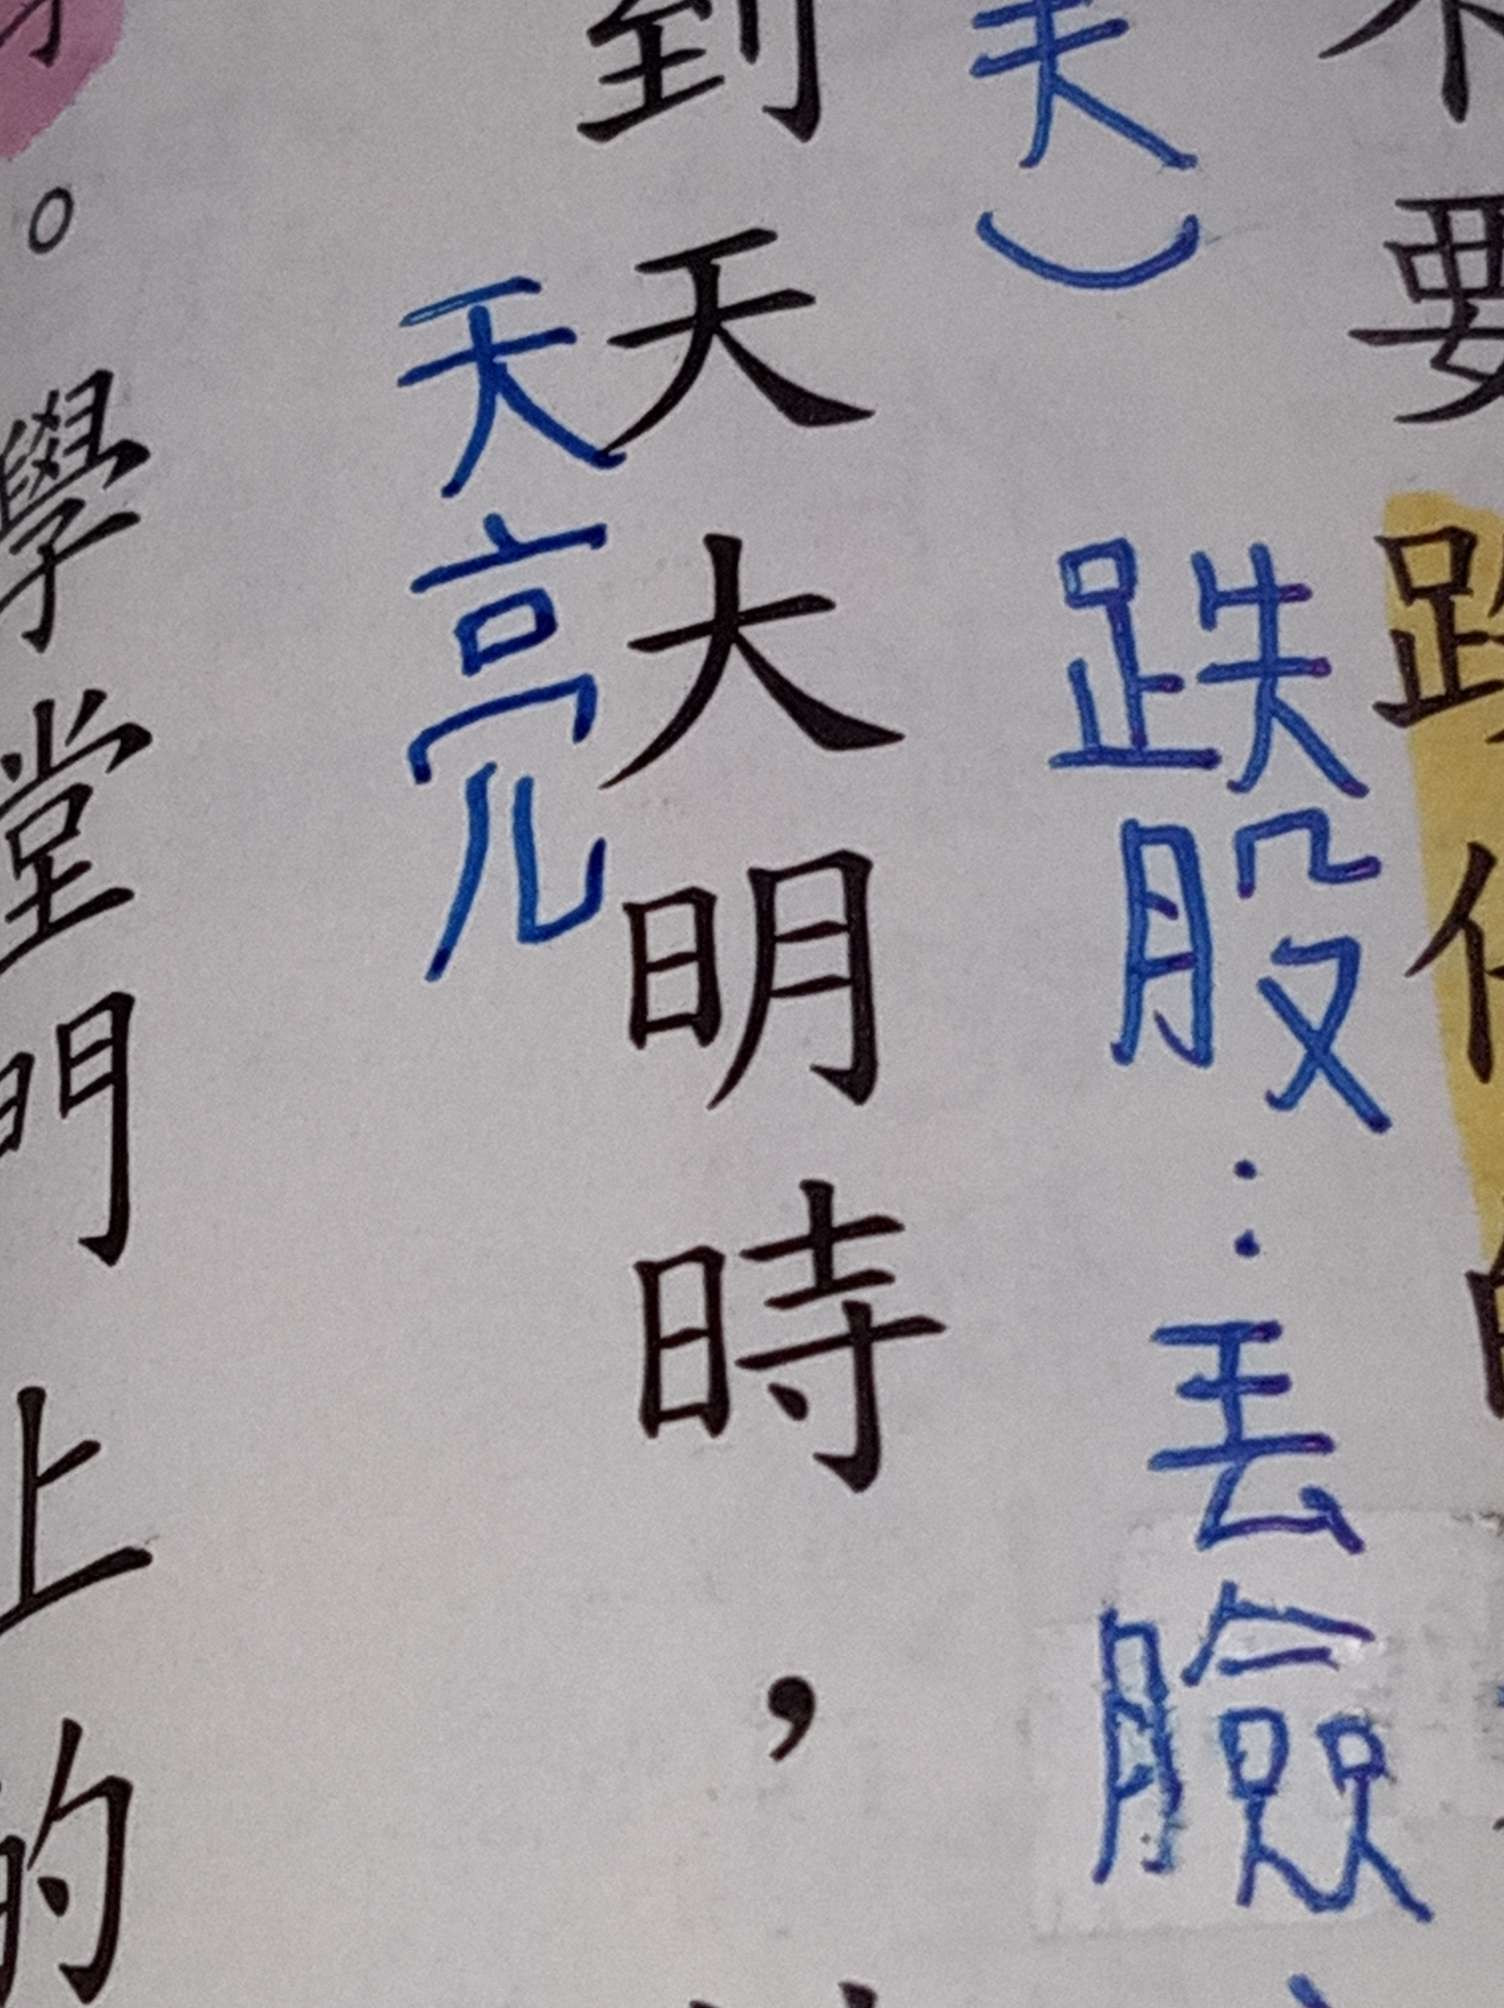 不要
跌股：丟臉
美）
到天大明時，
天亮
。學堂門上的